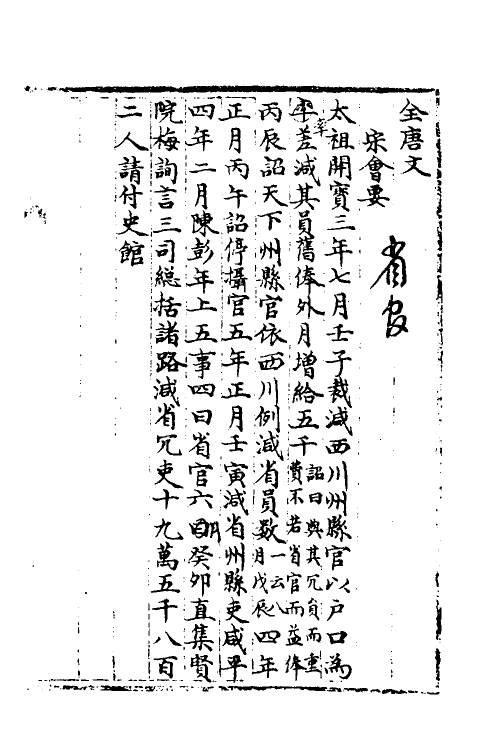 全唐文
宋會要
省官
太祖開寶三年七月壬子裁減西川州縣官以户口為
率差減其員舊俸外月增給五千詔曰與其冗員而重費不若省官而益俸
丙辰詔天下州縣官依西川例減省員數一云八月戊辰四年
正月丙午詔停攝官五年正月壬寅減省州縣吏咸平
四年二月陳彭年上五事四曰省官六月癸卯直集賢
院梅詢言三司総括諸路減省冗吏十九萬五千八百
二人請付史館